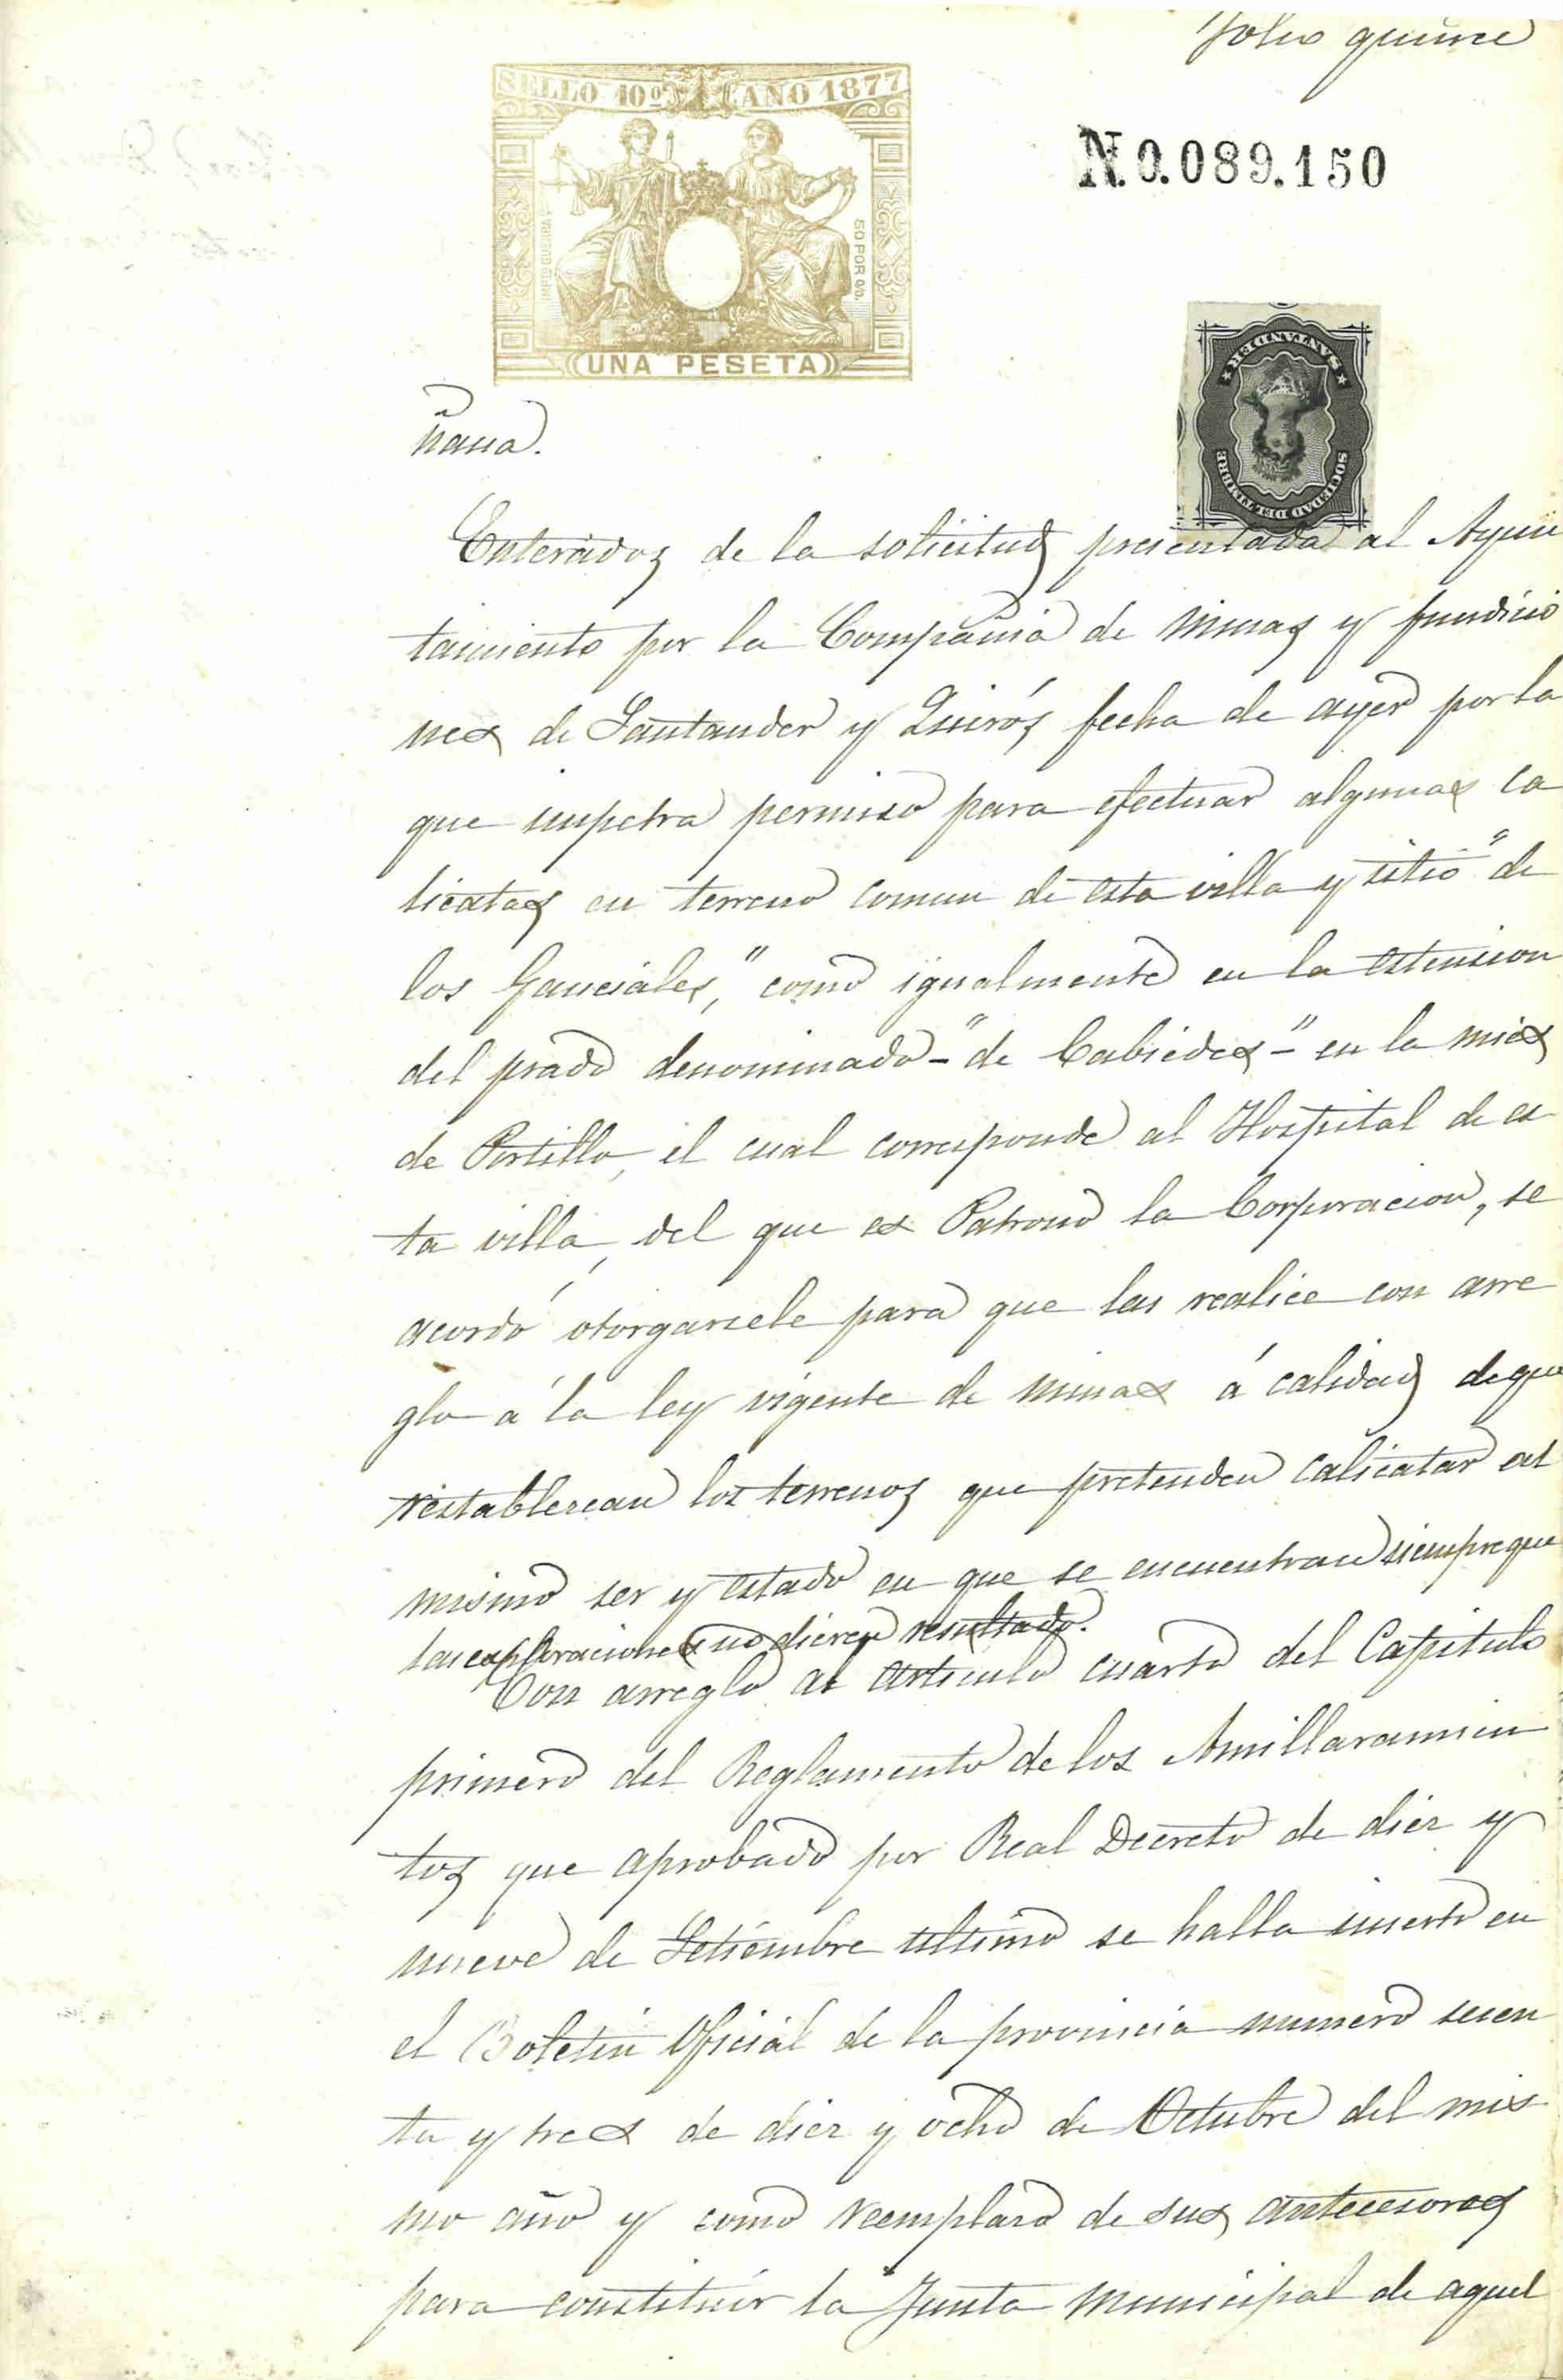 Folio quince
SELLO 10º AÑO 1877
N.0.089.150
IMPTO GUERRA
50 POR 0/0.
UNA PESETA
SANTANDER
SOCIEDAD DEL TIMBRE
ñana.
Enterados de la solicitud presentada al Ayun
tamiento por la Compañia de Minas y fundicio
nes de Santander y Quirós fecha de ayer por la
que impetra permiso para efectuar algunas ca
licatas en terreno comun de esta villa y sitio "de
los Ganciales," como igualmente en la estension
del prado denominado - "de Cabiedes -" en la mies
de Portillo, el cual corresponde al Hospital de es
ta villa, del que es Patrono la Corporacion, se
acordó otorgarsele para que las realice con arre
glo á la ley vigente de minas á calidad de que
restablezcan los terrenos que pretenden calicatar al
mismo ser y estado en que se encuentran siempre que
las exploraciones no dieren resultado.
Con arreglo al artículo cuarto del Capitulo
primero del Reglamento de los Amillaramien
tos que aprobado por Real Decreto de diez y
nueve de Setiembre ultimo se halla inserto en
el Boletin Oficial de la provincia numero sesen
ta y tres de diez y ocho de Octubre del mis
mo año y como reemplazo de sus antecesores
para constituir la Junta Municipal de aquel